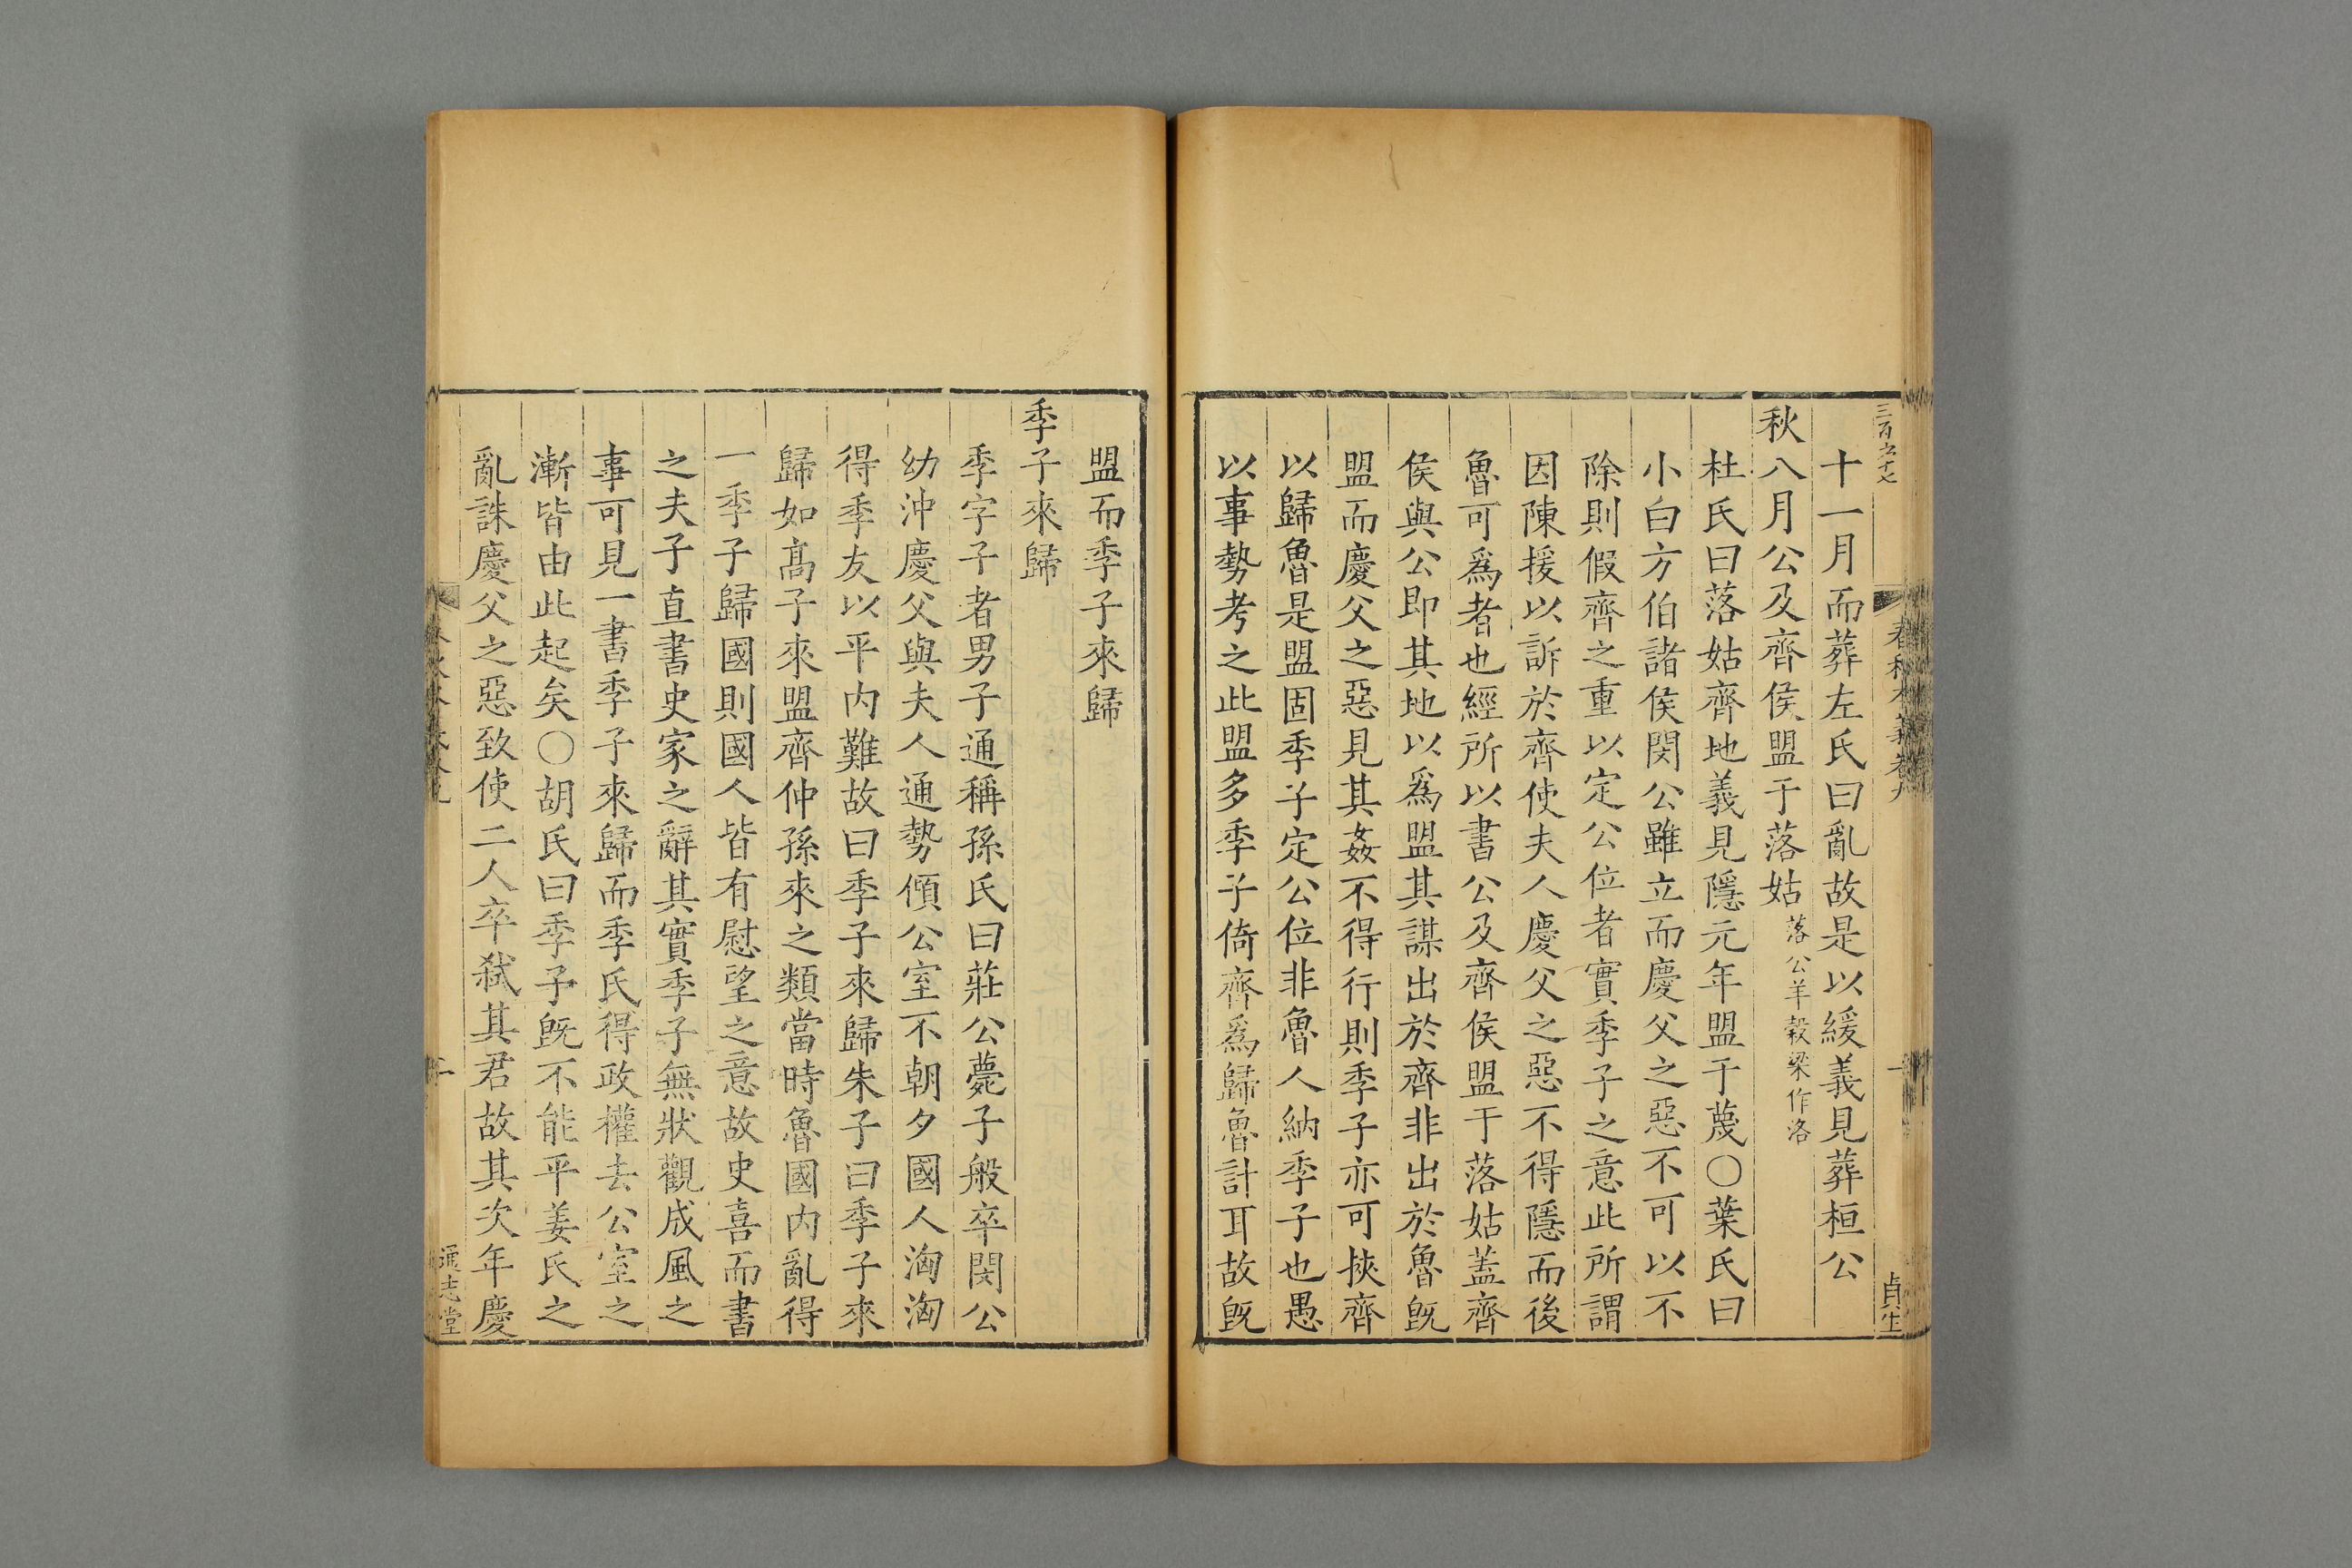 三百六十七
春秋本義卷九
一
貞生
十一月而葬左氏曰亂故是以緩義見葬桓公
秋八月公及齊侯盟于落姑落公羊穀梁作洛
杜氏曰落姑齊地義見隱元年盟于蔑○葉氏曰
小白方伯諸侯閔公雖立而慶父之惡不可以不
除則假齊之重以定公位者實季子之意此所謂
因陳援以訴於齊使夫人慶父之惡不得隱而後
魯可爲者也經所以書公及齊侯盟于落姑蓋齊
侯與公即其地以爲盟其謀出於齊非出於魯旣
盟而慶父之惡見其姦不得行則季子亦可挾齊
以歸魯是盟固季子定公位非魯人納季子也愚
以事勢考之此盟多季子倚齊爲歸魯計耳故旣
盟而季子來歸
季子來歸
季字子者男子通稱孫氏曰莊公薨子般卒閔公
幼沖慶父與夫人通勢傾公室不朝夕國人洶洶
得季友以平內難故曰季子來歸朱子曰季子來
歸如高子來盟齊仲孫來之類當時魯國內亂得
一季子歸國則國人皆有慰望之意故史喜而書
之夫子直書史家之辭其實季子無狀觀成風之
事可見一書季子來歸而季氏得政權去公室之
漸皆由此起矣○胡氏曰季子旣不能平姜氏之
亂誅慶父之惡致使二人卒弒其君故其次年慶
通志堂